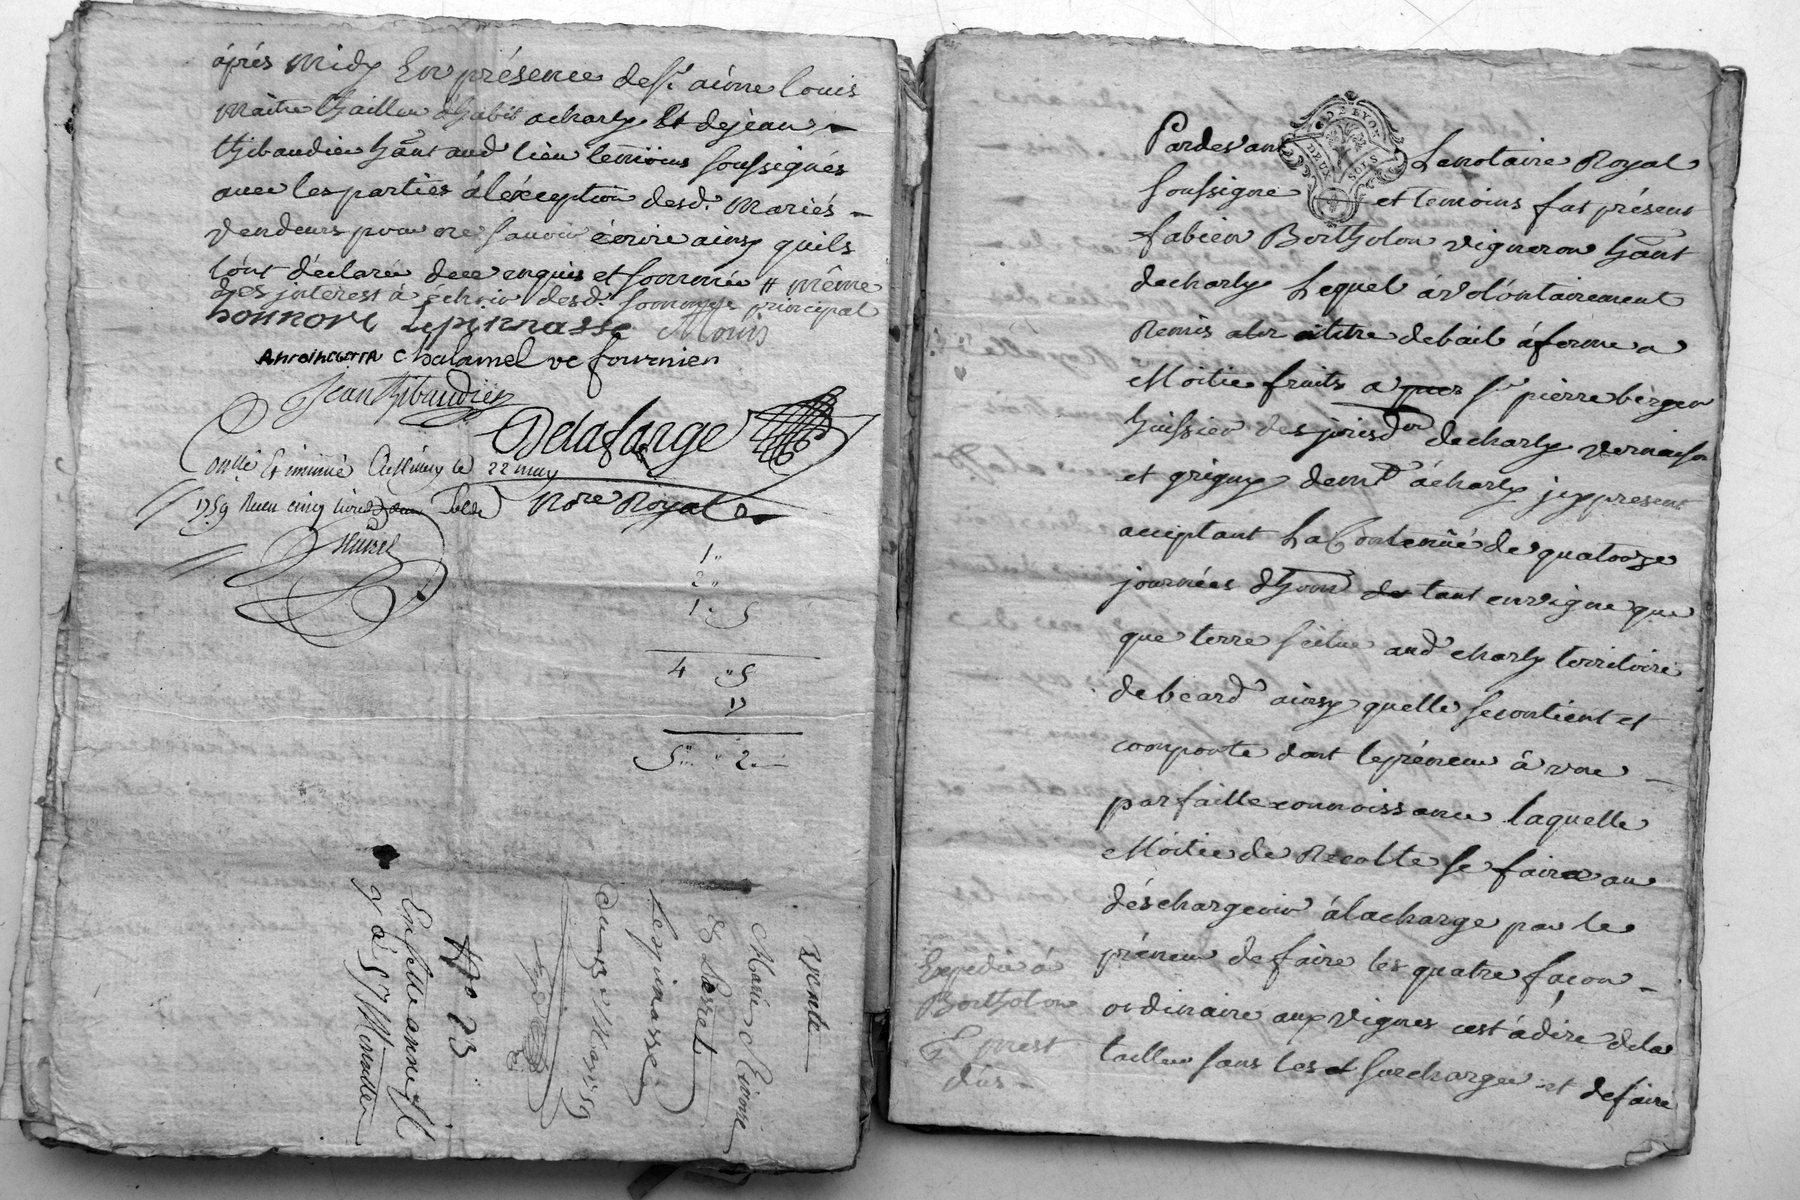 áprés midy En présence de sr. aime Louis
maitre tailleur habit a charly Et de jean
thibaudier hant aud. lieu temoins soussignés
avec les parties à léxception desd. mariés
vendeurs pour ne savoir écrire ainsy quils
lont déclaré de ce enquis et sommés # même
des interest à échoir desd. somme principal
honnore Lepinasse A Louis
chalamel ve fournier
Jean thibaudier
Delafarge
Conllé Et insinué le 22 may
1759 Reçu cinq livres deux sols
Nore Royal
1"
2"
1 " 5
4 " 5
17
5 " " 2
vente
Marie
& Sarret
Lespinasse
Du 13 Mars 1759
No 23
y à Sr
Pardevant Le notaire Royal
DE LYON
DEUX SOLS
soussigné et temoins fut présent
fabien Bertholon vigneron hant
de charly Lequel à volontairement
Remis a titre de bail à ferme a
Moitié fruits a sr pierre berger
huissier des jurisdon de charly vernaison
et grigny demt à charly icy present
acceptant La Contenüe de quatorze
journées dhom de tant en vigne que
que terre scitue aud charly territoire
de beard ainsy quelle se contient et
comporte dont le préneur à une
parfaitte connoissance laquelle
Moitié de Recolte se faira au
déschargeoir à la charge par le
préneur de faire les quatre façon
ordinaire aux vignes cest à dire de la
tailler sans les surcharger et de faire
Expedié à
Bertholon